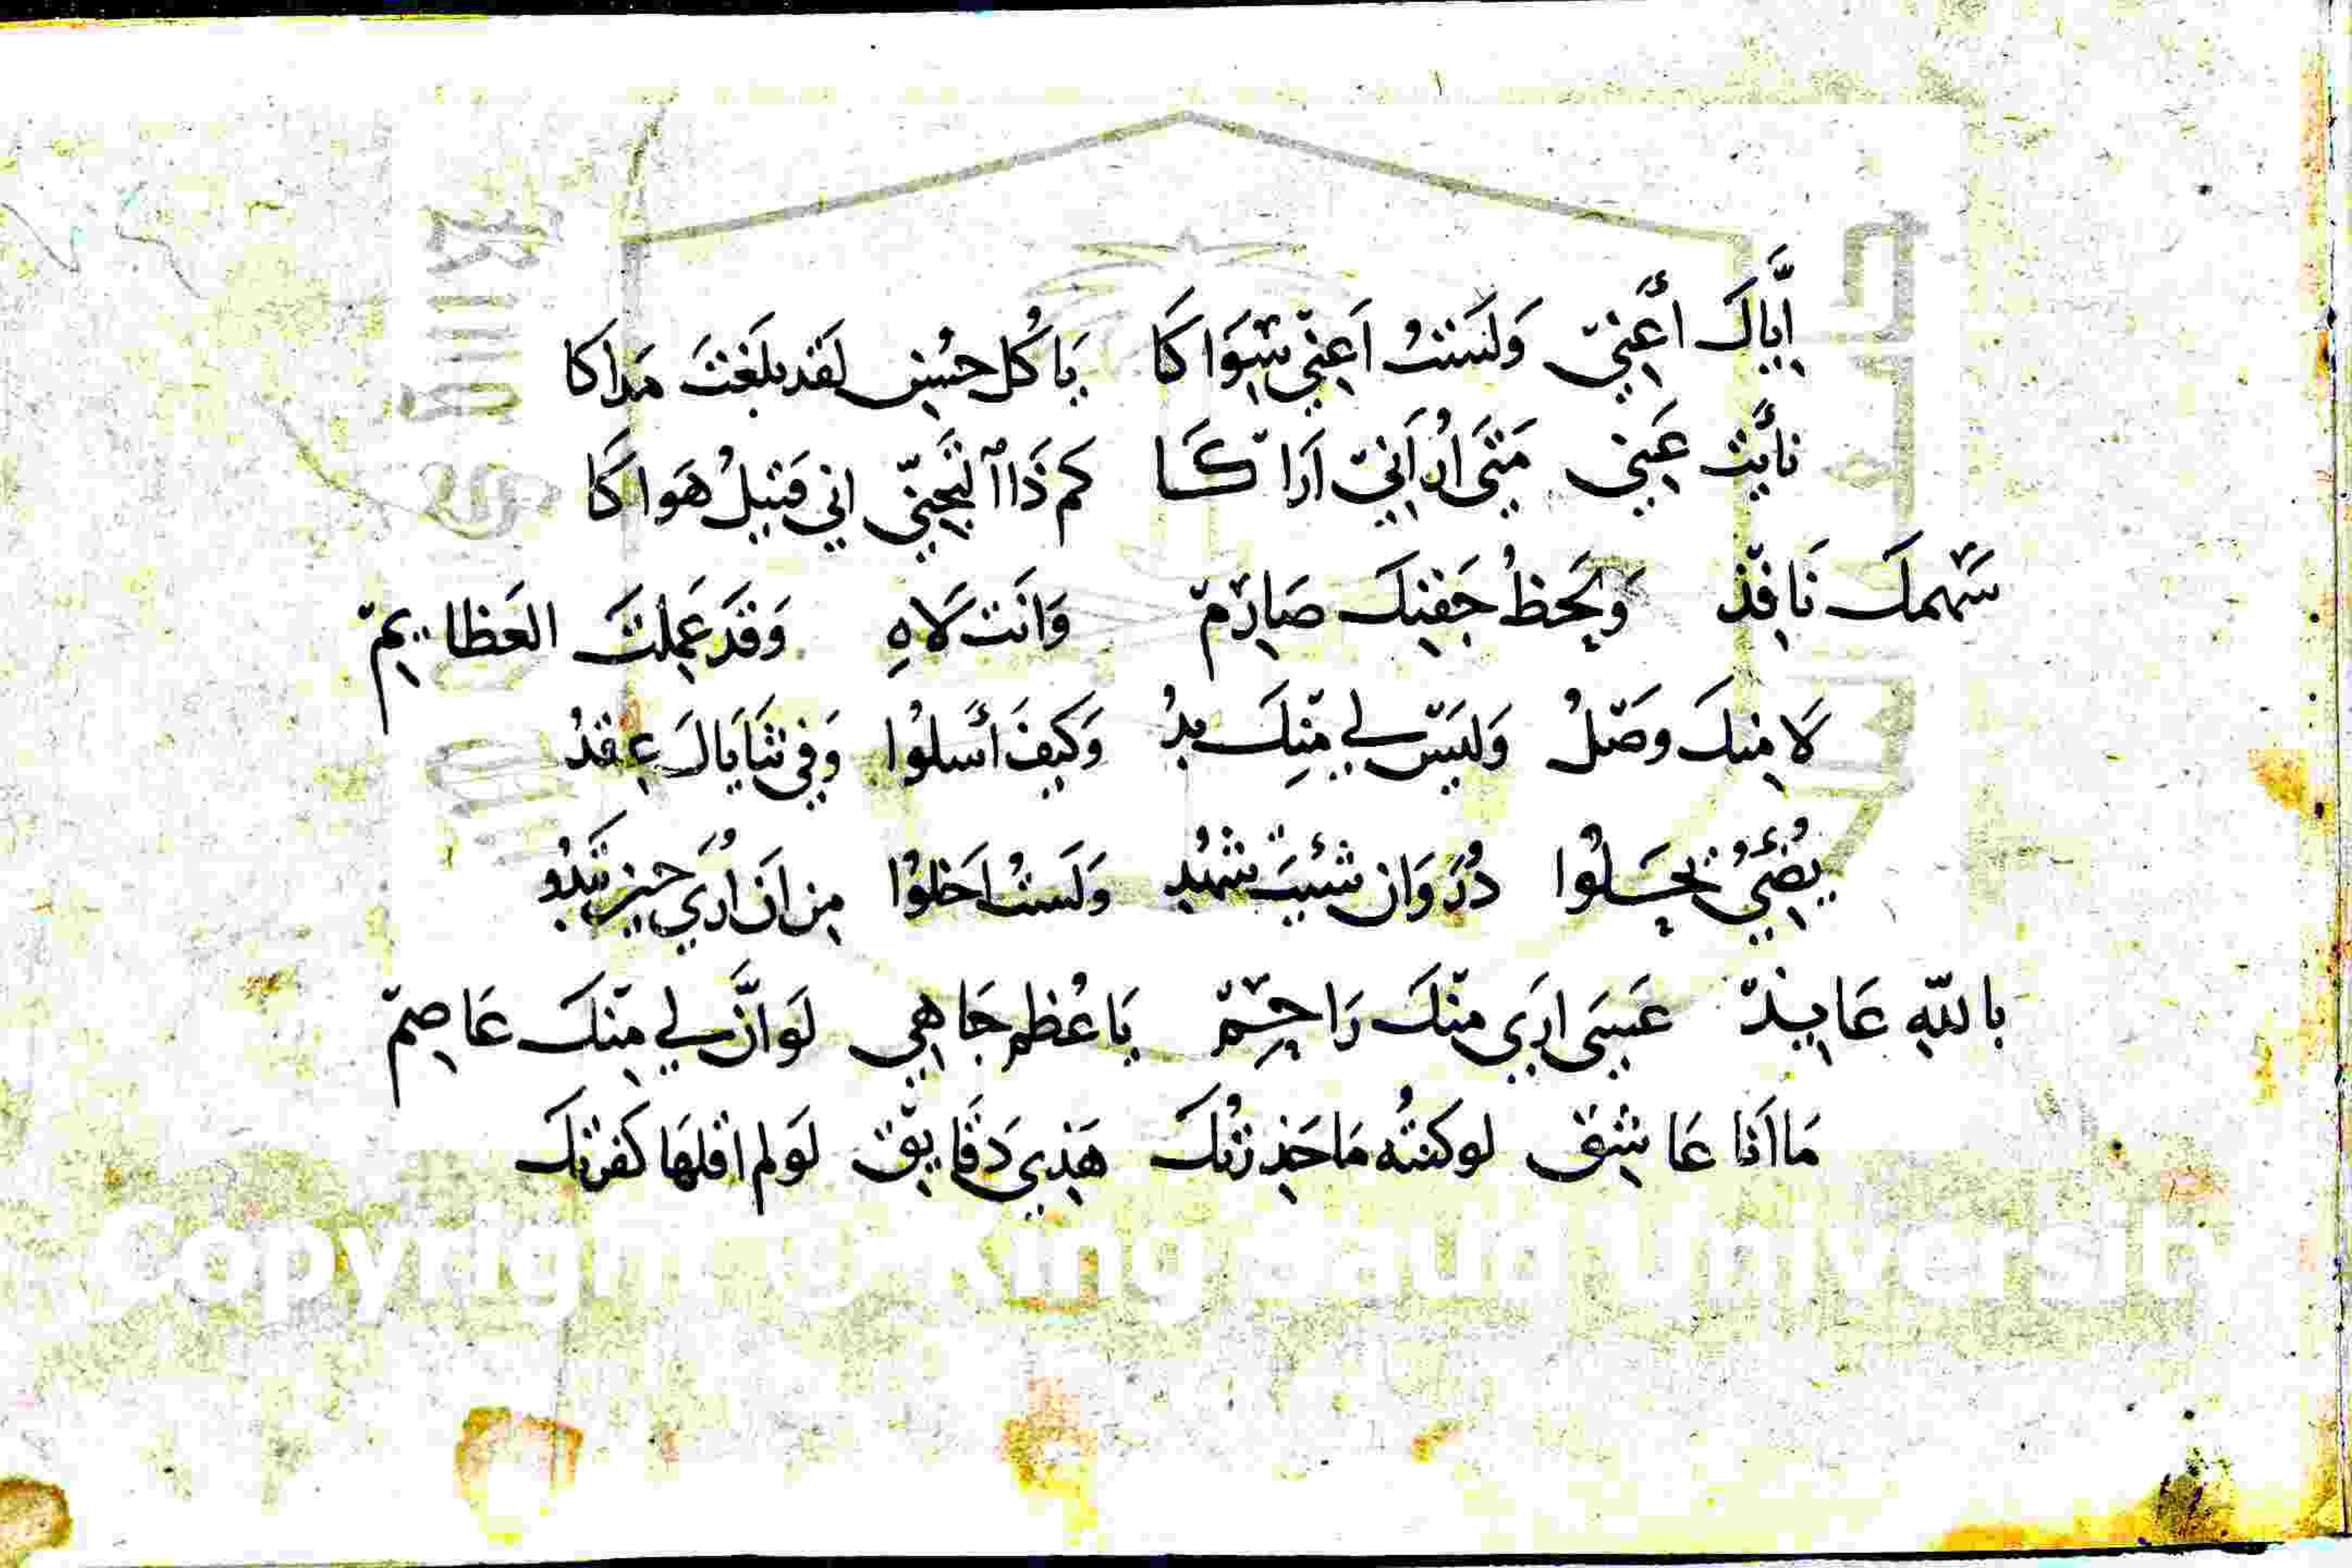 إيَّاكَ أَعِنيّ وَلَسْتُ اَعِنِي سِوَاكَا يَا كُل حُسْنٍ لَقَد بَلَغْتَ مَدَاكَا
نأيْت عَنِي مَتَى اُرانِي اَرَاكَا كم ذَا التَّجَنِّي اني قَتِيلُ هَواكَا
سَهمكَ نَافِذ وَلَحظُ جَفنِكَ صَارِم وَانَت لَاهِ وَقَدَ عَمِلتَ العَظايِم
لَا مِنكَ وصَلُ وَلَيسَ لي مِنِكَ بدُ وَكَيفَ أَسلوُا وَفي ثنَايَاكَ عِقدُ
يُضِئُ يَحَلُوا دُرُ وَان شئِيتَ شهُد وَلَستُ اَخلوُا مِن اَن اُرَي حين تَبَدُو
باللّهِ عَايذ عَسَى ارَى مِنّكَ رَاحِم يَا عُظم جَاهِي لَو انَّ لي مِنكَ عَاصِم
مَا اَنَا عَاشِق لو كنتُه مَا حَذِرتُكَ هَذِي دَقَايِق لَو لم اقلهَا كَفرتكَ
Copyright © King Saud University
King Saud